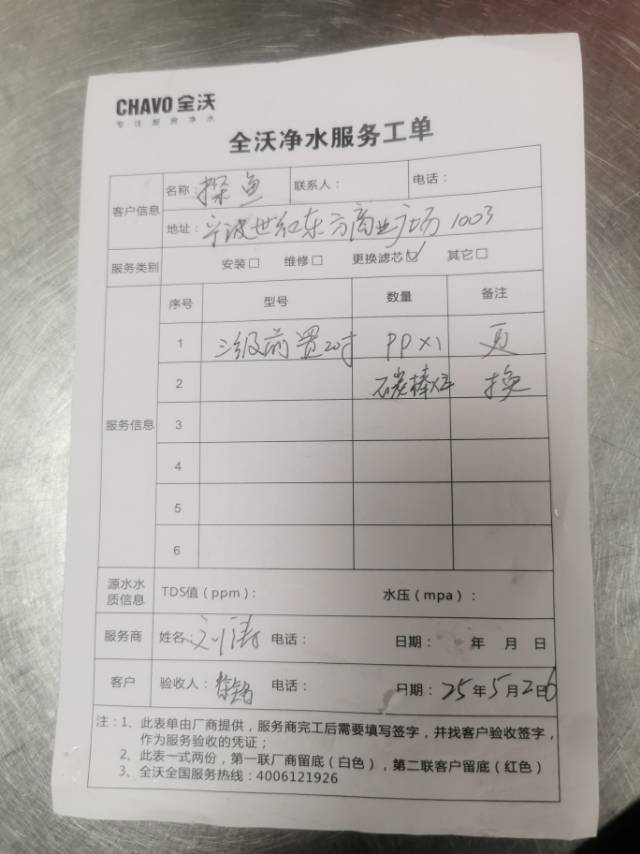 CHAVO 全沃
专注厨房净水
全沃净水服务工单
客户信息 名称：探鱼 联系人： 电话：
地址：宁波世纪东方商业广场 1003
服务类别 安装□ 维修□ 更换滤芯☑ 其它□
服务信息 序号 型号 数量 备注
1 三级前置20寸 PP×1 更
2 碳棒 换
3
4
5
6
源水水质信息 TDS值（ppm）： 水压（mpa）：
服务商 姓名：刘涛 电话： 日期： 年 月 日
客户 验收人： 电话： 日期：25年5月26日
注：1、此表单由厂商提供，服务商完工后需要填写签字，并找客户验收签字，
作为服务验收的凭证；
2、此表一式两份，第一联厂商留底（白色），第二联客户留底（红色）
3、全沃全国服务热线：4006121926